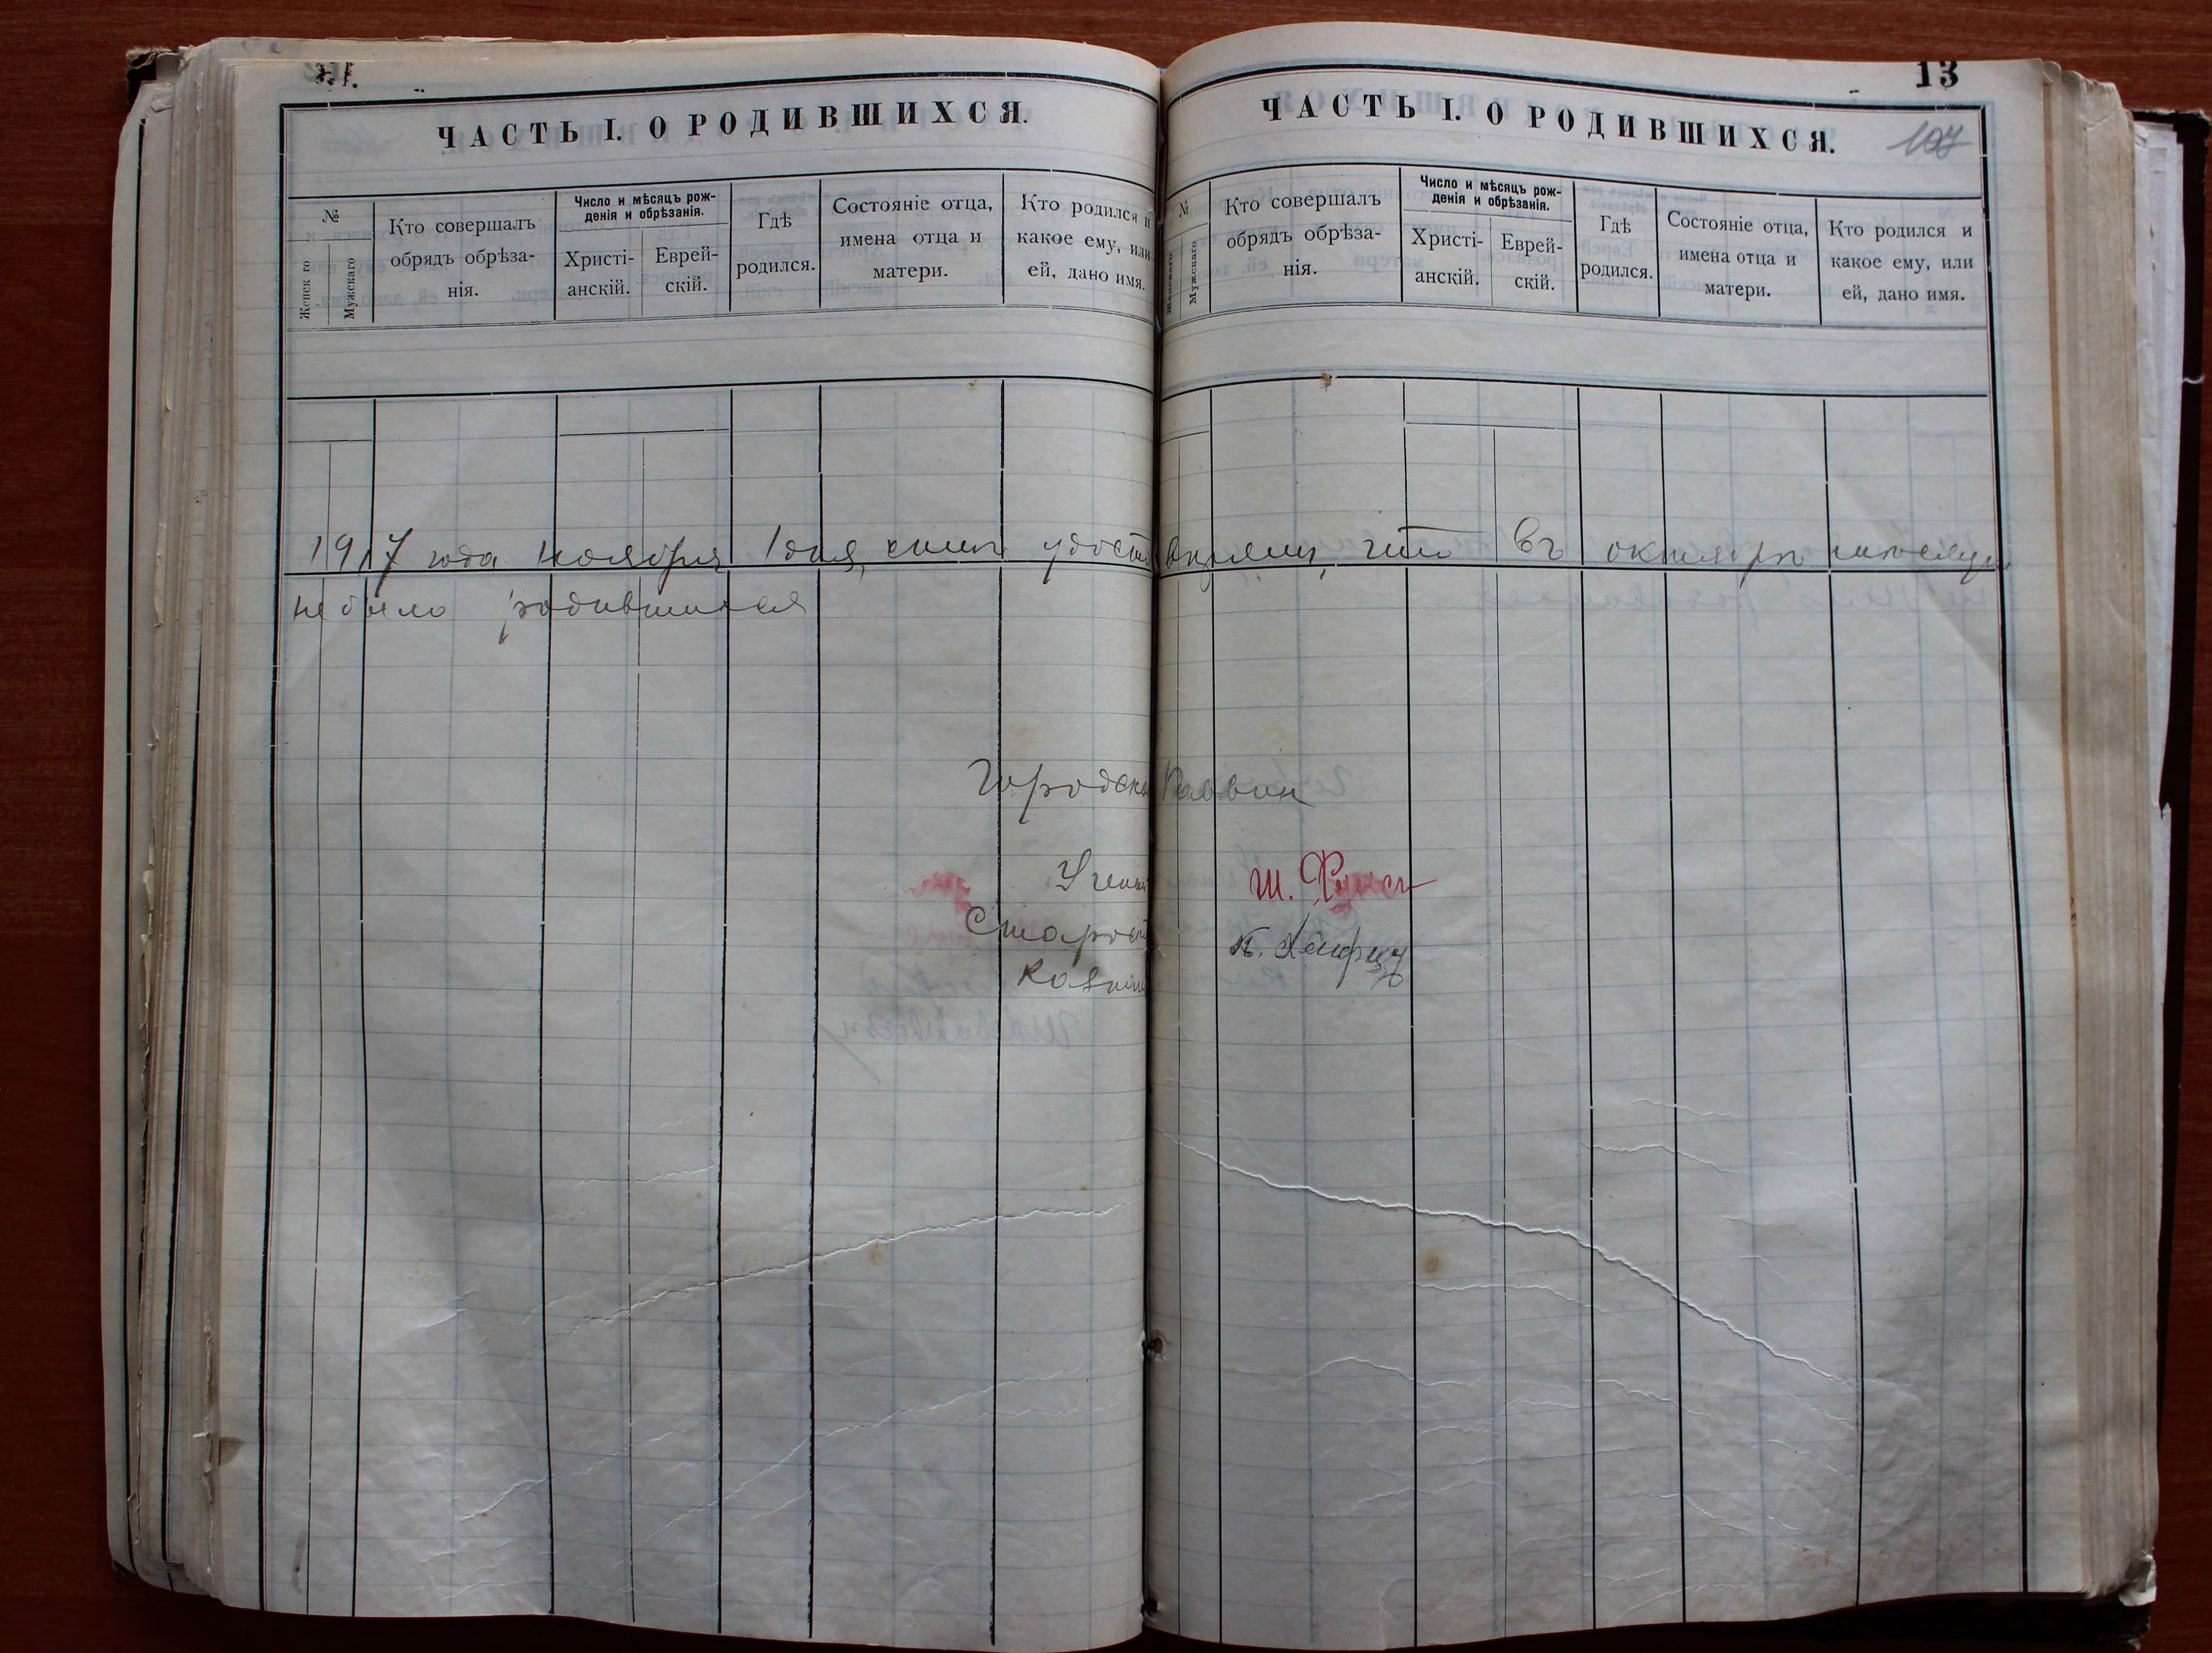 ЧАСТЬ I. О РОДИВШИХСЯ.
№
Женскаго
Мужскаго
Кто совершалъ
обрядъ обрѣза-
нія.
Число и мѣсяцъ рож-
денія и обрѣзанія.
Христі-
анскій.
Еврей-
скій.
Гдѣ
родился.
Состояніе отца,
имена отца и
матери.
Кто родился и
какое ему, или
ей, дано имя.
13
107
ЧАСТЬ I. О РОДИВШИХСЯ.
№
Женскаго
Мужскаго
Кто совершалъ
обрядъ обрѣза-
нія.
Число и мѣсяцъ рож-
денія и обрѣзанія.
Христі-
анскій.
Еврей-
скій.
Гдѣ
родился.
Состояніе отца,
имена отца и
матери.
Кто родился и
какое ему, или
ей, дано имя.
1917 года ноября 1 дня, симъ что въ октябрѣ мѣсяцѣ
не было родившихся
Городск Раввин
Учены Ш. Фуксъ
Старост К.
Казначе